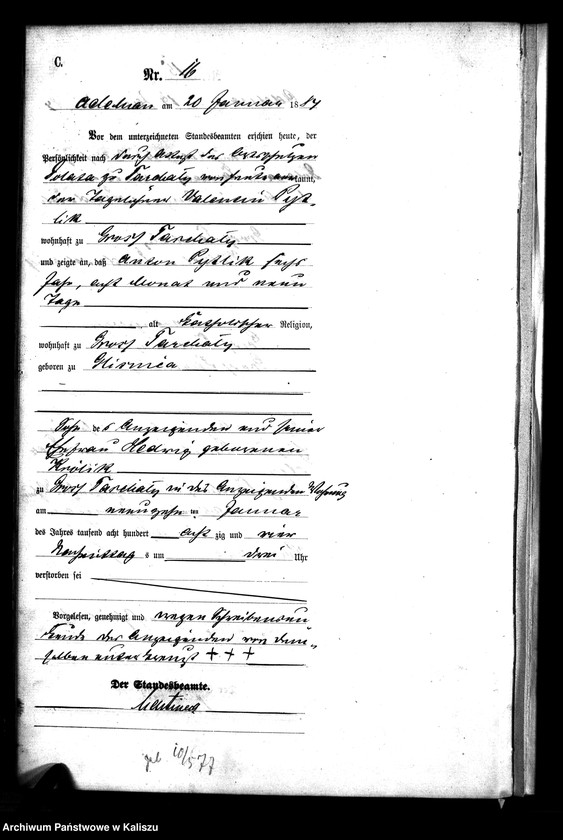 C.
Nr. 16
Adelnau am 20 Januar 1884
Vor dem unterzeichneten Standesbeamten erschien heute, der
Persönlichkeit nach durch Attest des Ortsschulzen
zu Tarchaly von heute anerkannt,
der Tagelöhner Valentin Pyt-
lik
wohnhaft zu Gross Tarchaly
und zeigte an, daß Anton Pytlik sechs
Jahr, acht Monat und neun
Tage
, alt katholischer Religion,
wohnhaft zu Gross Tarchaly
geboren zu Glisnica
Sohn des Anzeigenden und seiner
Ehefrau Hedwig geborenen
Krolik
zu Gross Tarchaly in des Anzeigenden Wohnung
am neunzehn ten Januar
des Jahres tausend acht hundert acht zig und vier
Nachmittags um drei Uhr
verstorben sei
Vorgelesen, genehmigt und wegen Schreibensun
kunde des Anzeigenden von dem-
selben unterkreuzt +++
Der Standesbeamte.
geb 10/5 77
Archiwum Państwowe w Kaliszu